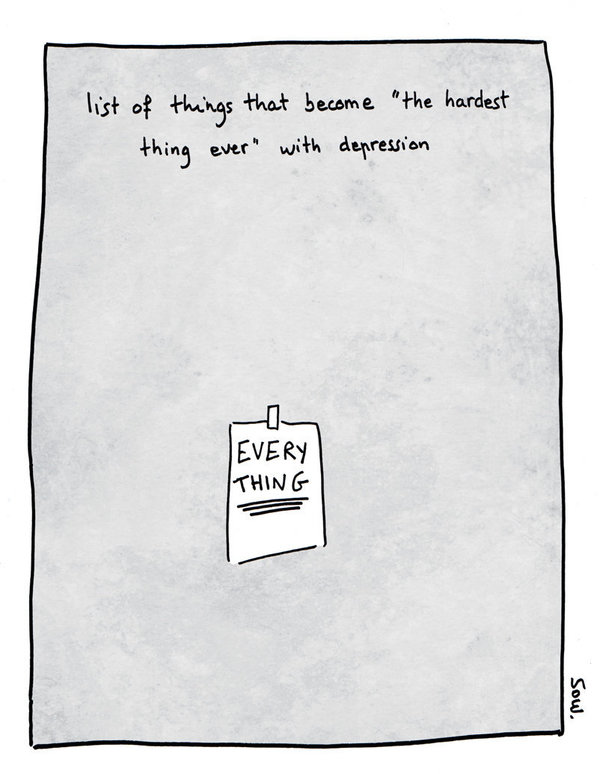 list of things that become "the hardest
thing ever" with depression
EVERY
THING
Sow.